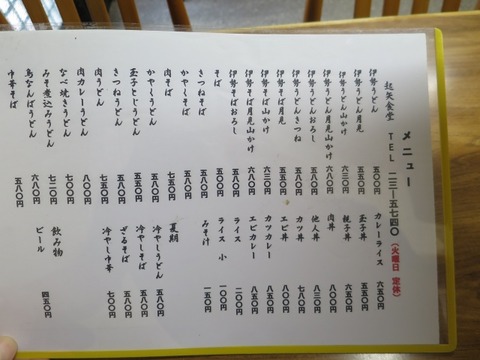 メニュー
起矢食堂 TEL 二三―五七四〇 (火曜日 定休)
伊勢うどん 五〇〇円
伊勢うどん月見 五五〇円
伊勢うどん山かけ 六三〇円
伊勢うどん月見山かけ 六八〇円
伊勢うどんおろし 五八〇円
伊勢うどんきつね 五八〇円
伊勢そば月見 五五〇円
伊勢そば山かけ 六三〇円
伊勢そば月見山かけ 六八〇円
伊勢そばおろし 五八〇円
そば 五〇〇円
きつねそば 五五〇円
かやくそば 五五〇円
肉そば 七五〇円
かやくうどん 五五〇円
玉子とじうどん 五五〇円
きつねうどん 五五〇円
肉うどん 七五〇円
肉カレーうどん 八〇〇円
なべ焼きうどん 七〇〇円
みそ煮込みうどん 七二〇円
鳥なんばうどん 六八〇円
中華そば 五八〇円
カレーライス 六五〇円
玉子丼 五五〇円
親子丼 六五〇円
肉丼 八〇〇円
他人丼 八三〇円
カツ丼 七八〇円
エビ丼 八〇〇円
カツカレー 八五〇円
エビカレー 八五〇円
ライス 二〇〇円
ライス 小 一〇〇円
みそ汁 一五〇円
夏期
冷やしうどん 五八〇円
冷やしそば 五八〇円
ざるそば 五五〇円
冷やし中華 七〇〇円
飲み物
ビール 四五〇円